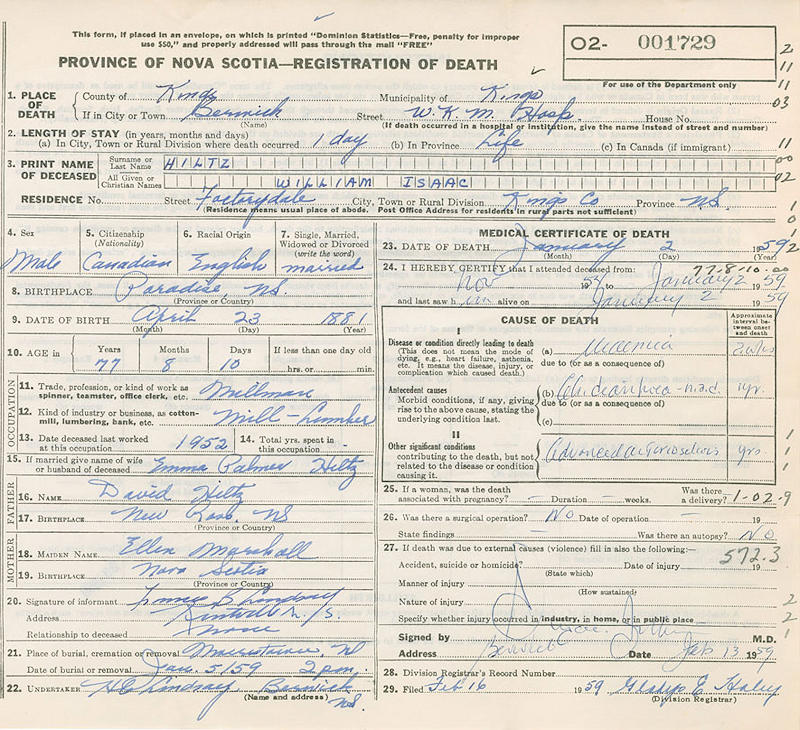 This form, if placed in an envelope, on which is printed "Dominion Statistics—Free, penalty for improper
use $50," and properly addressed will pass through the mail "FREE"
PROVINCE OF NOVA SCOTIA—REGISTRATION OF DEATH
O2- 001729
For use of the Department only
2
11
11
03
11
00
02
1
0
1. PLACE OF DEATH
County of Kings Municipality of Kings
If in City or Town Berwick Street W. K. M. Hosp House No.
(Name) (If death occurred in a hospital or institution, give the name instead of street and number)
2. LENGTH OF STAY (in years, months and days)
(a) In City, Town or Rural Division where death occurred 1 day (b) In Province Life (c) In Canada (if immigrant)
3. PRINT NAME OF DECEASED
Surname or Last Name HILTZ
All Given or Christian Names WILLIAM ISAAC
RESIDENCE No. Street Factorydale City, Town or Rural Division Kings Co Province NS.
(Residence means usual place of abode. Post Office Address for residents in rural parts not sufficient)
4. Sex
Male
5. Citizenship
(Nationality)
Canadian
6. Racial Origin
English
7. Single, Married,
Widowed or Divorced
(write the word)
married
8. BIRTHPLACE Paradise, NS.
(Province or County)
9. DATE OF BIRTH April 23 1881
(Month) (Day) (Year)
10. AGE in
Years Months Days If less than one day old
77 8 10 hrs. or min.
OCCUPATION
11. Trade, profession, or kind of work as
spinner, teamster, office clerk, etc. Millman
12. Kind of industry or business, as cotton-
mill, lumbering, bank, etc. Mill - Lumber
13. Date deceased last worked
at this occupation 1952
14. Total yrs. spent in
this occupation
15. If married give name of wife
or husband of deceased Emma Palmer Hiltz
FATHER
16. NAME David Hiltz
17. BIRTHPLACE New Ross, NS
(Province or County)
MOTHER
18. MAIDEN NAME Ellen Marshall
19. BIRTHPLACE Nova Scotia
(Province or County)
20. Signature of informant B Lindsay
Address Kentville N/S.
Relationship to deceased None
21. Place of burial, cremation or removal
Date of burial or removal Jan. 5/59 2 pm.
22. UNDERTAKER H C Lindsay Berwick NS.
(Name and address)
MEDICAL CERTIFICATE OF DEATH
23. DATE OF DEATH January 2 1959
(Month) (Day) (Year)
2
77-8-10.00
24. I HEREBY CERTIFY that I attended deceased from:
Nov 1954 to January 2 1959
and last saw him alive on January 2 1959
CAUSE OF DEATH
Approximate interval between onset and death
I
Disease or condition directly leading to death
(This does not mean the mode of
dying, e.g., heart failure, asthenia,
etc. It means the disease, injury, or
complication which caused death.)
(a) Uraemia
due to (or as a consequence of)
Antecedent causes
Morbid conditions, if any, giving
rise to the above cause, stating the
underlying condition last.
(b) yr.
due to (or as a consequence of)
(c)
II
Other significant conditions
contributing to the death, but not
related to the disease or condition
causing it.
Advanced arteriosclerosis yrs.
1
1
1
25. If a woman, was the death
associated with pregnancy? — Duration — weeks.
Was there
a delivery?
1-02.9
26. Was there a surgical operation? No Date of operation — 19
State findings — Was there an autopsy? No
27. If death was due to external causes (violence) fill in also the following:—
572.3
Accident, suicide or homicide? Date of injury 19
(State which)
Manner of injury
(How sustained)
Nature of injury
2
Specify whether injury occurred in industry, in home, or in public place
2
Signed by M.D.
1
Address Berwick Date Feb 13 1959
28. Division Registrar's Record Number
29. Filed Feb 16 1959 Gladys E Haley
(Division Registrar)